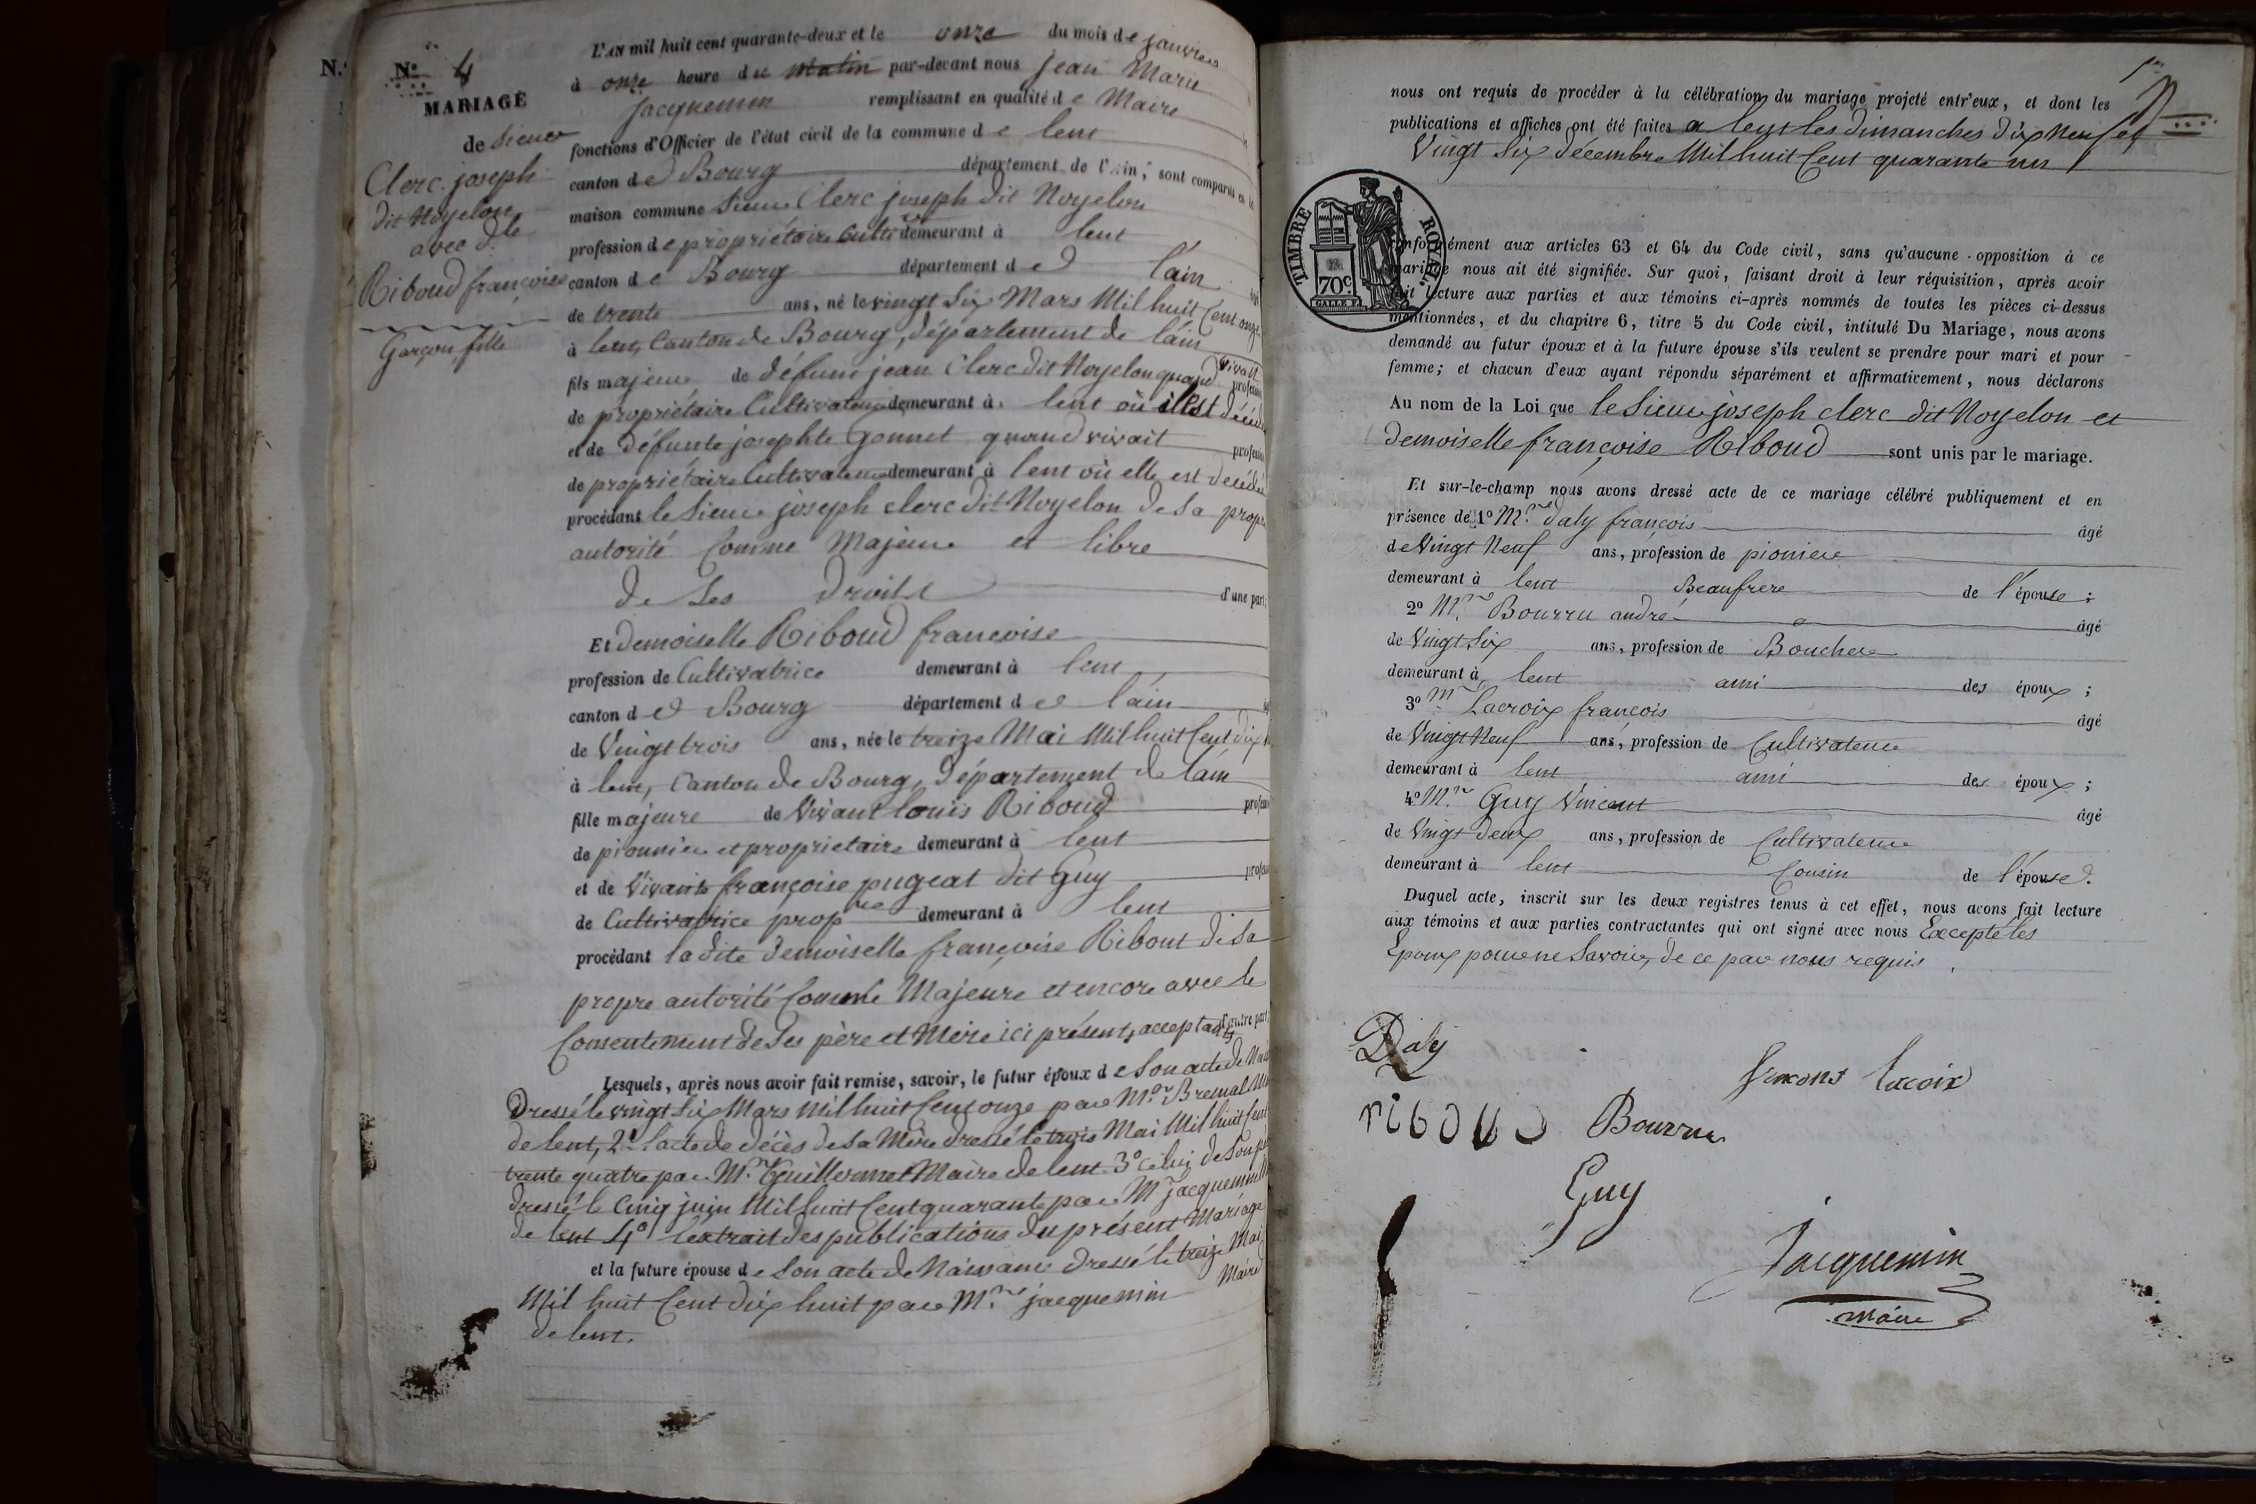 N.°
N.° 4
MARIAGE
de Sieur
Clerc joseph
dit Noyelon
avec dlle
Riboud françoise
Garçon, fille
L'AN mil huit cent quarante-deux et le onze du mois de janvier
à onze heure du matin par-devant nous jean Marie
jacquemin remplissant en qualité de Maire
fonctions d'Officier de l'état civil de la commune de lent
canton de Bourg département de l'Ain, sont comparus en la
maison commune Sieur Clerc joseph dit Noyelon
profession de propriétaire cultivr demeurant à lent
canton de Bourg département de l'ain
de trente ans, né le vingt Six Mars Mil huit Cent onze
à lent, Canton de Bourg, département de l'ain
fils majeur de défunt jean Clerc dit Noyelon quand vivait profession
de propriétaire Cultivateur demeurant à lent où il est décédé
et de défunte josephte Gonnet quand vivait profession
de propriétaire Cultivateur demeurant à lent où elle est décédée
procédant le Sieur joseph clerc dit Noyelon de Sa propre
autorité Comme Majeur et libre
de Ses droits d'une part;
Et demoiselle Riboud françoise
profession de Cultivatrice demeurant à lent
canton de Bourg département de l'ain
de Vingt trois ans, née le treize Mai Mil huit Cent dix
à lent, Canton de Bourg, département de l'ain
fille majeure de Vivant louis Riboud profession
de pionnier et propriétaire demeurant à lent
et de Vivante françoise pugeat dit Guy profession
de Cultivatrice propre demeurant à lent
procédant la dite demoiselle françoise Ribout de Sa
propre autorité Comme Majeure et encore avec le
Consentement de Ses père et Mère ici présents, acceptants d'autre part
Lesquels, après nous avoir fait remise, savoir, le futur époux de Son acte de
Dressé le vingt Six Mars Mil huit Cent onze par Mr Bremal
de lent, 2° l'acte de décès de Sa Mère dressé le trois Mai Mil huit Cent
trente quatre par Mr Guillermet Maire de lent 3° celui de Son père
dressé le Cinq juin Mil huit Cent quarante par Mr jacquemin
de lent 4° l'extrait des publications du présent Mariage
et la future épouse de Son acte de Naissance dressé le treize Mai
Mil huit Cent dix huit par Mr jacquemin Maire
de lent.
nous ont requis de procéder à la célébration du mariage projeté entr'eux, et dont les
publications et affiches ont été faites a lent les dimanches dix Neuf et
Vingt Six décembre Mil huit Cent quarante un
TIMBRE ROYAL
70c.
conformément aux articles 63 et 64 du Code civil, sans qu'aucune opposition à ce
mariage nous ait été signifiée. Sur quoi, faisant droit à leur réquisition, après avoir
fait lecture aux parties et aux témoins ci-après nommés de toutes les pièces ci-dessus
mentionnées, et du chapitre 6, titre 5 du Code civil, intitulé Du Mariage, nous avons
demandé au futur époux et à la future épouse s'ils veulent se prendre pour mari et pour
femme; et chacun d'eux ayant répondu séparément et affirmativement, nous déclarons
Au nom de la Loi que le Sieur joseph clerc dit Noyelon et
demoiselle françoise Riboud sont unis par le mariage.
Et sur-le-champ nous avons dressé acte de ce mariage célébré publiquement et en
présence de 1° Mr daly françois âgé
de Vingt Neuf ans, profession de pionier
demeurant à lent Beaufrere de l'épouse;
2° Mr Bourru andré âgé
de Vingt Six ans, profession de Boucher
demeurant à lent ami des époux;
3° Mr Lacroix françois âgé
de Vingt Neuf ans, profession de Cultivateur
demeurant à lent ami des époux;
4° Mr Guy Vincent âgé
de Vingt deux ans, profession de Cultivateur
demeurant à lent Cousin de l'épouse.
Duquel acte, inscrit sur les deux registres tenus à cet effet, nous avons fait lecture
aux témoins et aux parties contractantes qui ont signé avec nous Excepté les
Epoux pour ne Savoir, de ce par nous requis.
Daly
francois lacoix
riboud
Bourru
Guy
Jacquemin
maire